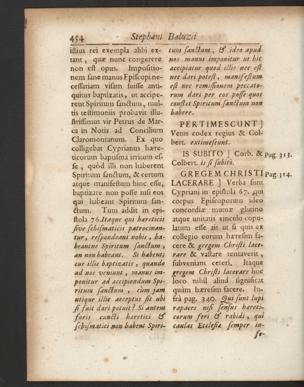 454 Stephani Baluzii
illius rei exempla alibi ex-
tant, quæ nunc congerere
non est opus. Impositio-
nem sane manus Episcopi ne-
cessariam visam fuisse anti-
quitus baptizatis, ut accipe-
rent Spiritum sanctum, mul-
tis testimoniis probavit illu-
strissimus vir Petrus de Mar-
ca in Notis ad Concilium
Claromontanum. Ex quo
colligebat Cyprianus hære-
ticorum baptisma irritum es-
se, quòd illi non haberent
Spiritum sanctum, & certum
atque manifestum hinc esse,
baptizare non posse nisi eos
qui habeant Spiritum san-
ctum. Tum addit in epi-
stola 76. Itaque qui hæreticis
sive schismaticis patrocinan-
tur, respondeant nobis, ha-
beantne Spiritum sanctum,
an non habeant. Si habent,
cur illic baptizatis, quando
ad nos veniunt, manus im-
ponitur ad accipiendum Spi-
ritum sanctum, cum jam
utique illic acceptus sit ubi
si fuit dari potuit? Si autem
foris cuncti hæretici &
schismatici non habent Spiri-
tum sanctum, & ideo apud
nos manus imponitur ut hic
accipiatur quod illic nec est
nec dari potest, manifestum
est nec remissionem peccato-
rum dari per eos posse quos
constet Spiritum sanctum non
habere.
PERTIMESCUNT ]
Vetus codex regius & Col-
bert. extimescunt.
IS SUBITO ] Corb. & Pag. 313.
Colbert. is si subitò.
GREGEM CHRISTI Pag. 314.
LACERARE ] Verba sunt
Cypriani in epistola 67. qui
corpus Episcoporum ideo
concordiæ mutuæ glutino
atque unitatis vinculo copu-
latum esse ait ut si quis ex
collegio eorum hæresim fa-
cere & gregem Christi lace-
rare & vastare tentaverit,
subveniant ceteri. Itaque
gregem Christi lacerare hoc
loco nihil aliud significat
quàm hæresim facere. In-
frà pag. 340. Qui sunt lupi
rapaces nisi sensus hæreti-
corum feri & rabidi, qui
caulas Ecclesiæ semper in-
fe-